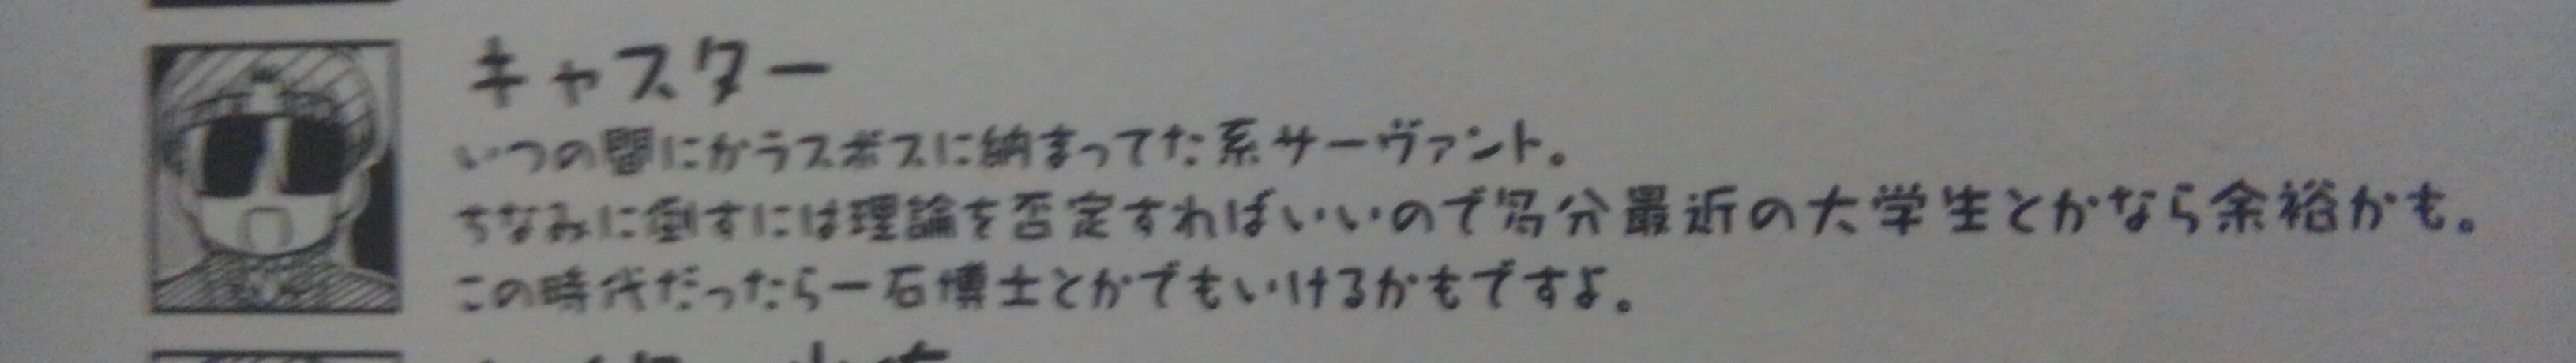 キャスター
いつの間にかラスボスに納まってた系サーヴァント。
ちなみに倒すには理論を否定すればいいので多分最近の大学生とかなら余裕かも。
この時代だったら一石博士とかでもいけるかもですよ。